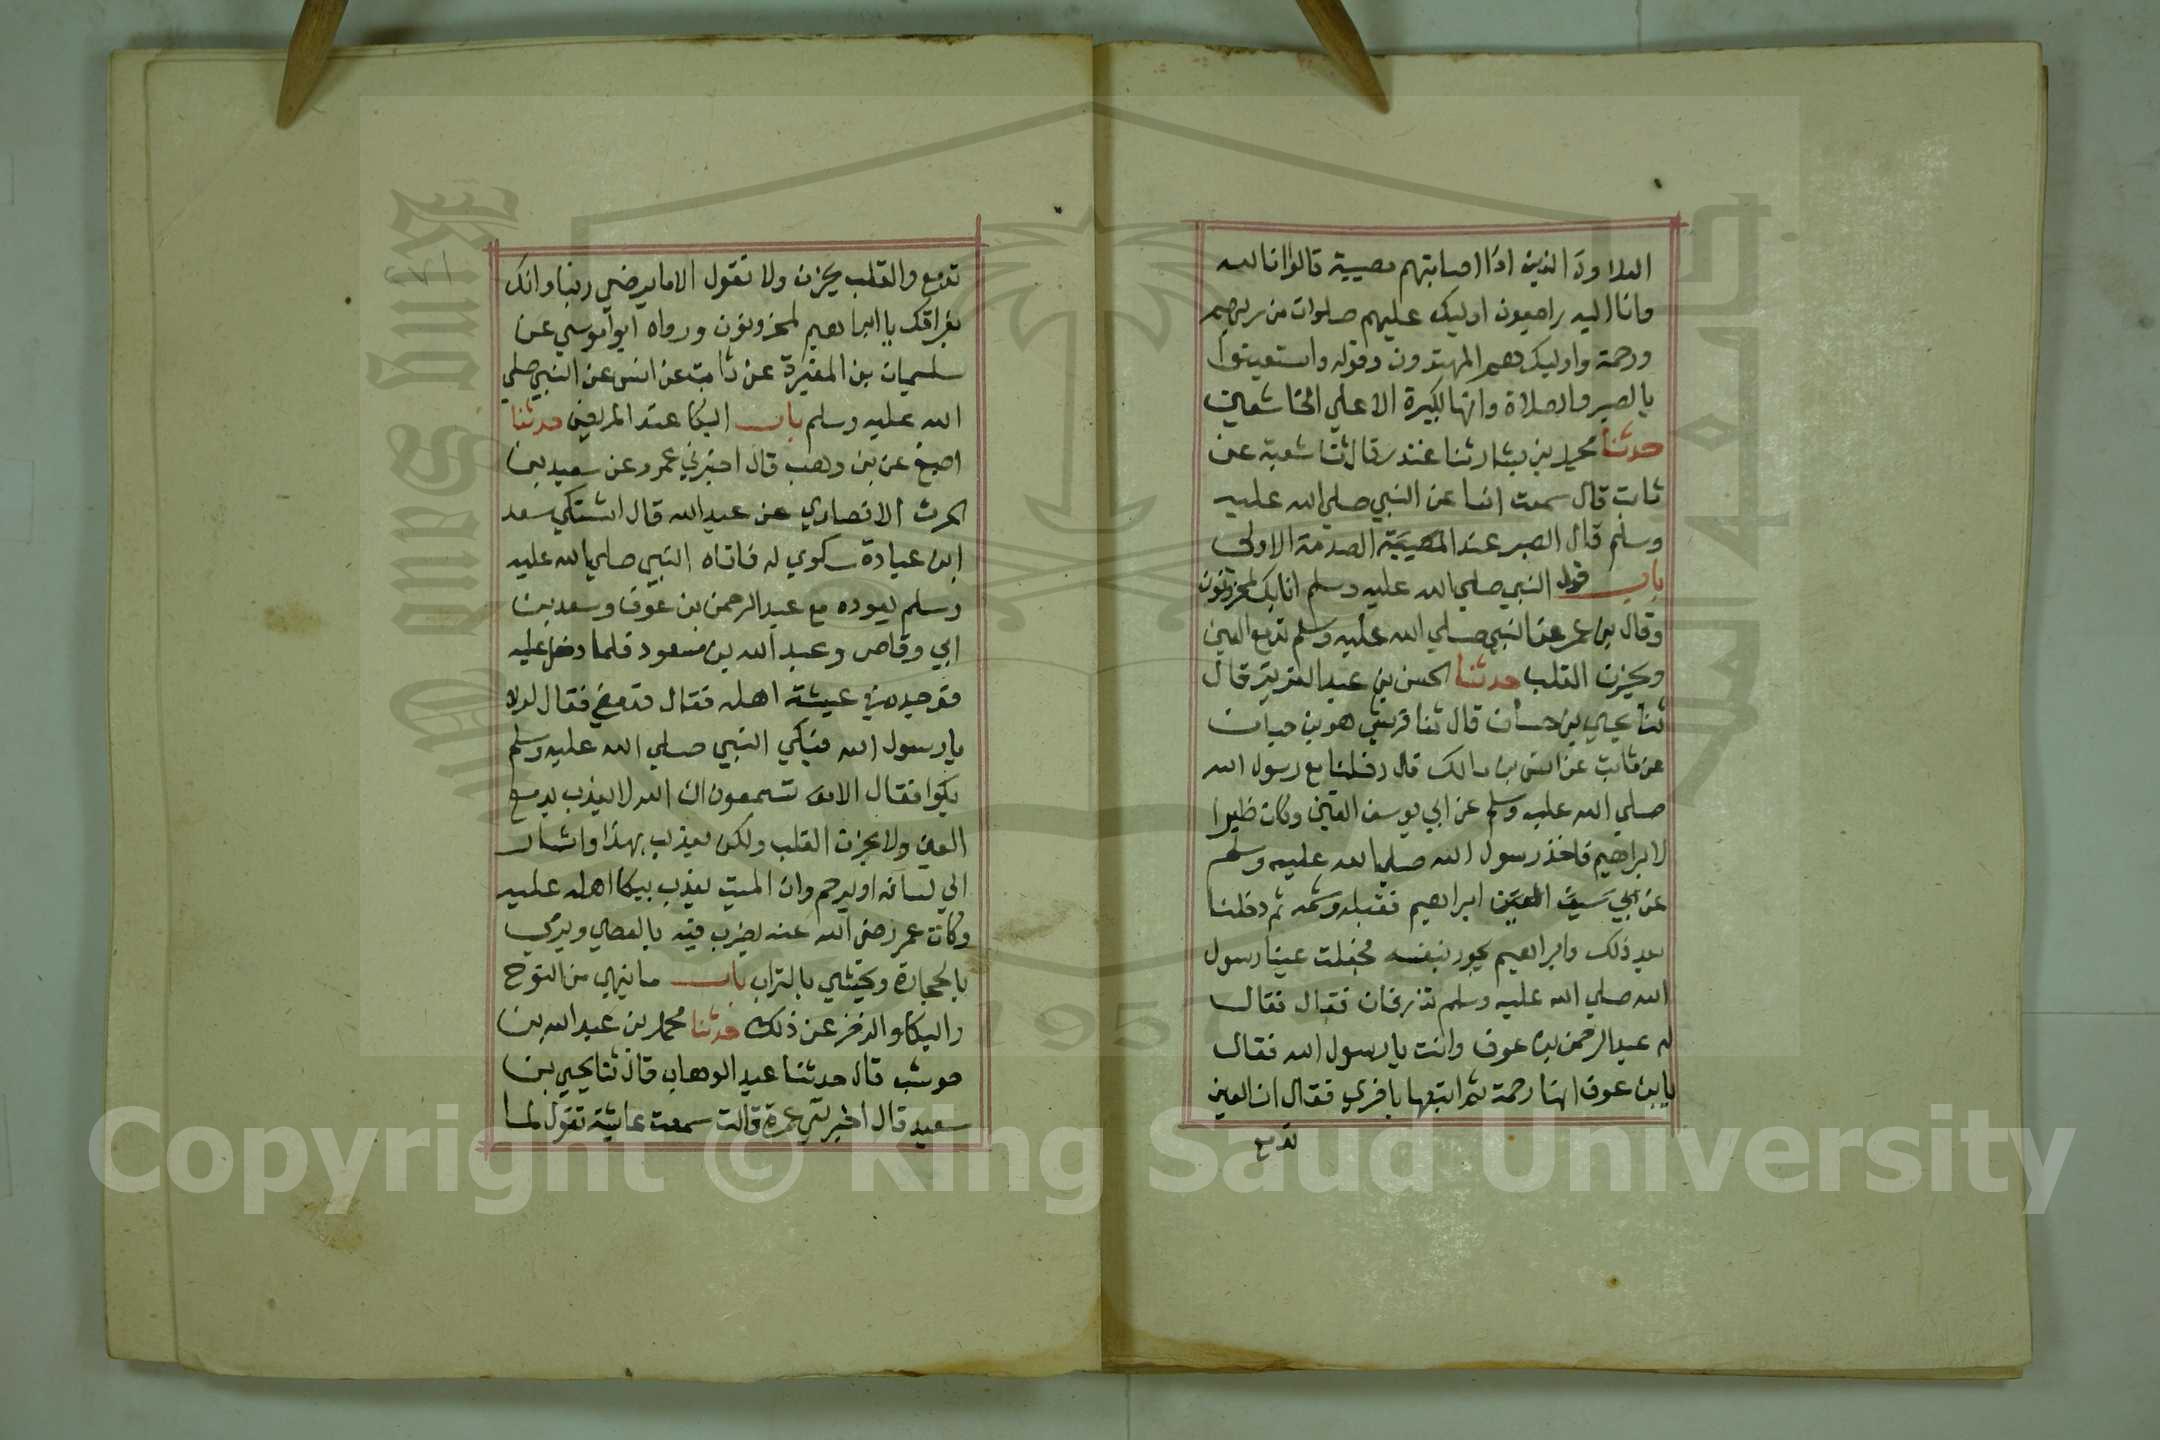 العلاوة الذين اذا اصابتهم مصيبة قالوا انا لله
وانا اليه راجعون اوليك عليهم صلوات من ربهم
ورحمة واوليك هم المهتدون وقوله واستعينوا
بالصبر والصلاة وانها لكبيرة الا علي الخاشعين
حدثنا محمد بن بشار ثنا غندر قال ثنا شعبة عن
ثابت قال سمعت انسا عن النبي صلي الله عليه
وسلم قال الصبر عند المصيبة الصدمة الاولى
باب قول النبي صلي الله عليه وسلم انا بك لمحزونون
وقال بن عمر عن النبي صلي الله عليه وسلم تدمع العين
ويحزن القلب حدثنا الحسن بن عبد العزيز قال
ثنا يحيي بن حسان قال ثنا قريش هو بن حيان
عن ثابت عن انس بن مالك قال دخلنا مع رسول الله
صلي الله عليه وسلم عن ابي يوسف القين وكان ظيرا
لابراهيم فاخذ رسول الله صلي الله عليه وسلم
عن ابي سيف القين ابراهيم فقبله وشمه ثم دخلنا
بعد ذلك وابراهيم يجود بنفسه فجعلت عينا رسول
الله صلي الله عليه وسلم تذرفان فقال فقال
له عبد الرحمن بن عوف وانت يا رسول الله فقال
يا بن عوف انها رحمة ثم اتبعها باخري فقال ان العين
تدمع
تدمع والقلب يحزن ولا نقول الا ما يرضي ربنا وانك
بفراقك يا ابراهيم لمحزونون ورواه ابواموسي عن
سليمان بن المغيرة عن ثابت عن انس عن النبي صلي
الله عليه وسلم باب البكا عند المريض حدثنا
اصبغ عن بن وهب قال اخبرني عمرو عن سعيد بن
الحرث الانصاري عن عبد الله قال اشتكي سعد
ابن عبادة سكوي له فاتاه النبي صلي الله عليه
وسلم يعوده مع عبد الرحمن بن عوف وسعد بن
ابي وقاص وعبد الله بن مسعود فلما دخل عليه
فوجده في عيشة اهله فقال قد مضي فقال لولا
يا رسول الله فبكي النبي صلي الله عليه وسلم
بكوا فقال الا تسمعون ان الله لا يعذب بدمع
العين ولا بحزن القلب ولكن يعذب بهذا واشار
الي لسانه او يرحم وان الميت يعذب ببكا اهله عليه
وكان عمر رضي الله عنه يضرب فيه بالعصي ويرمي
بالحجارة ويحثي بالتراب باب ما ينهي من النوح
والبكا والزجر عن ذلك حدثنا محمد بن عبد الله بن
حوشب قال حدثنا عبد الوهاب قال ثنا يحيي بن
سعيد قال اخبرتني عمرة قالت سمعت عايشة تقول لما
King Saud University
1957
Copyright © King Saud University